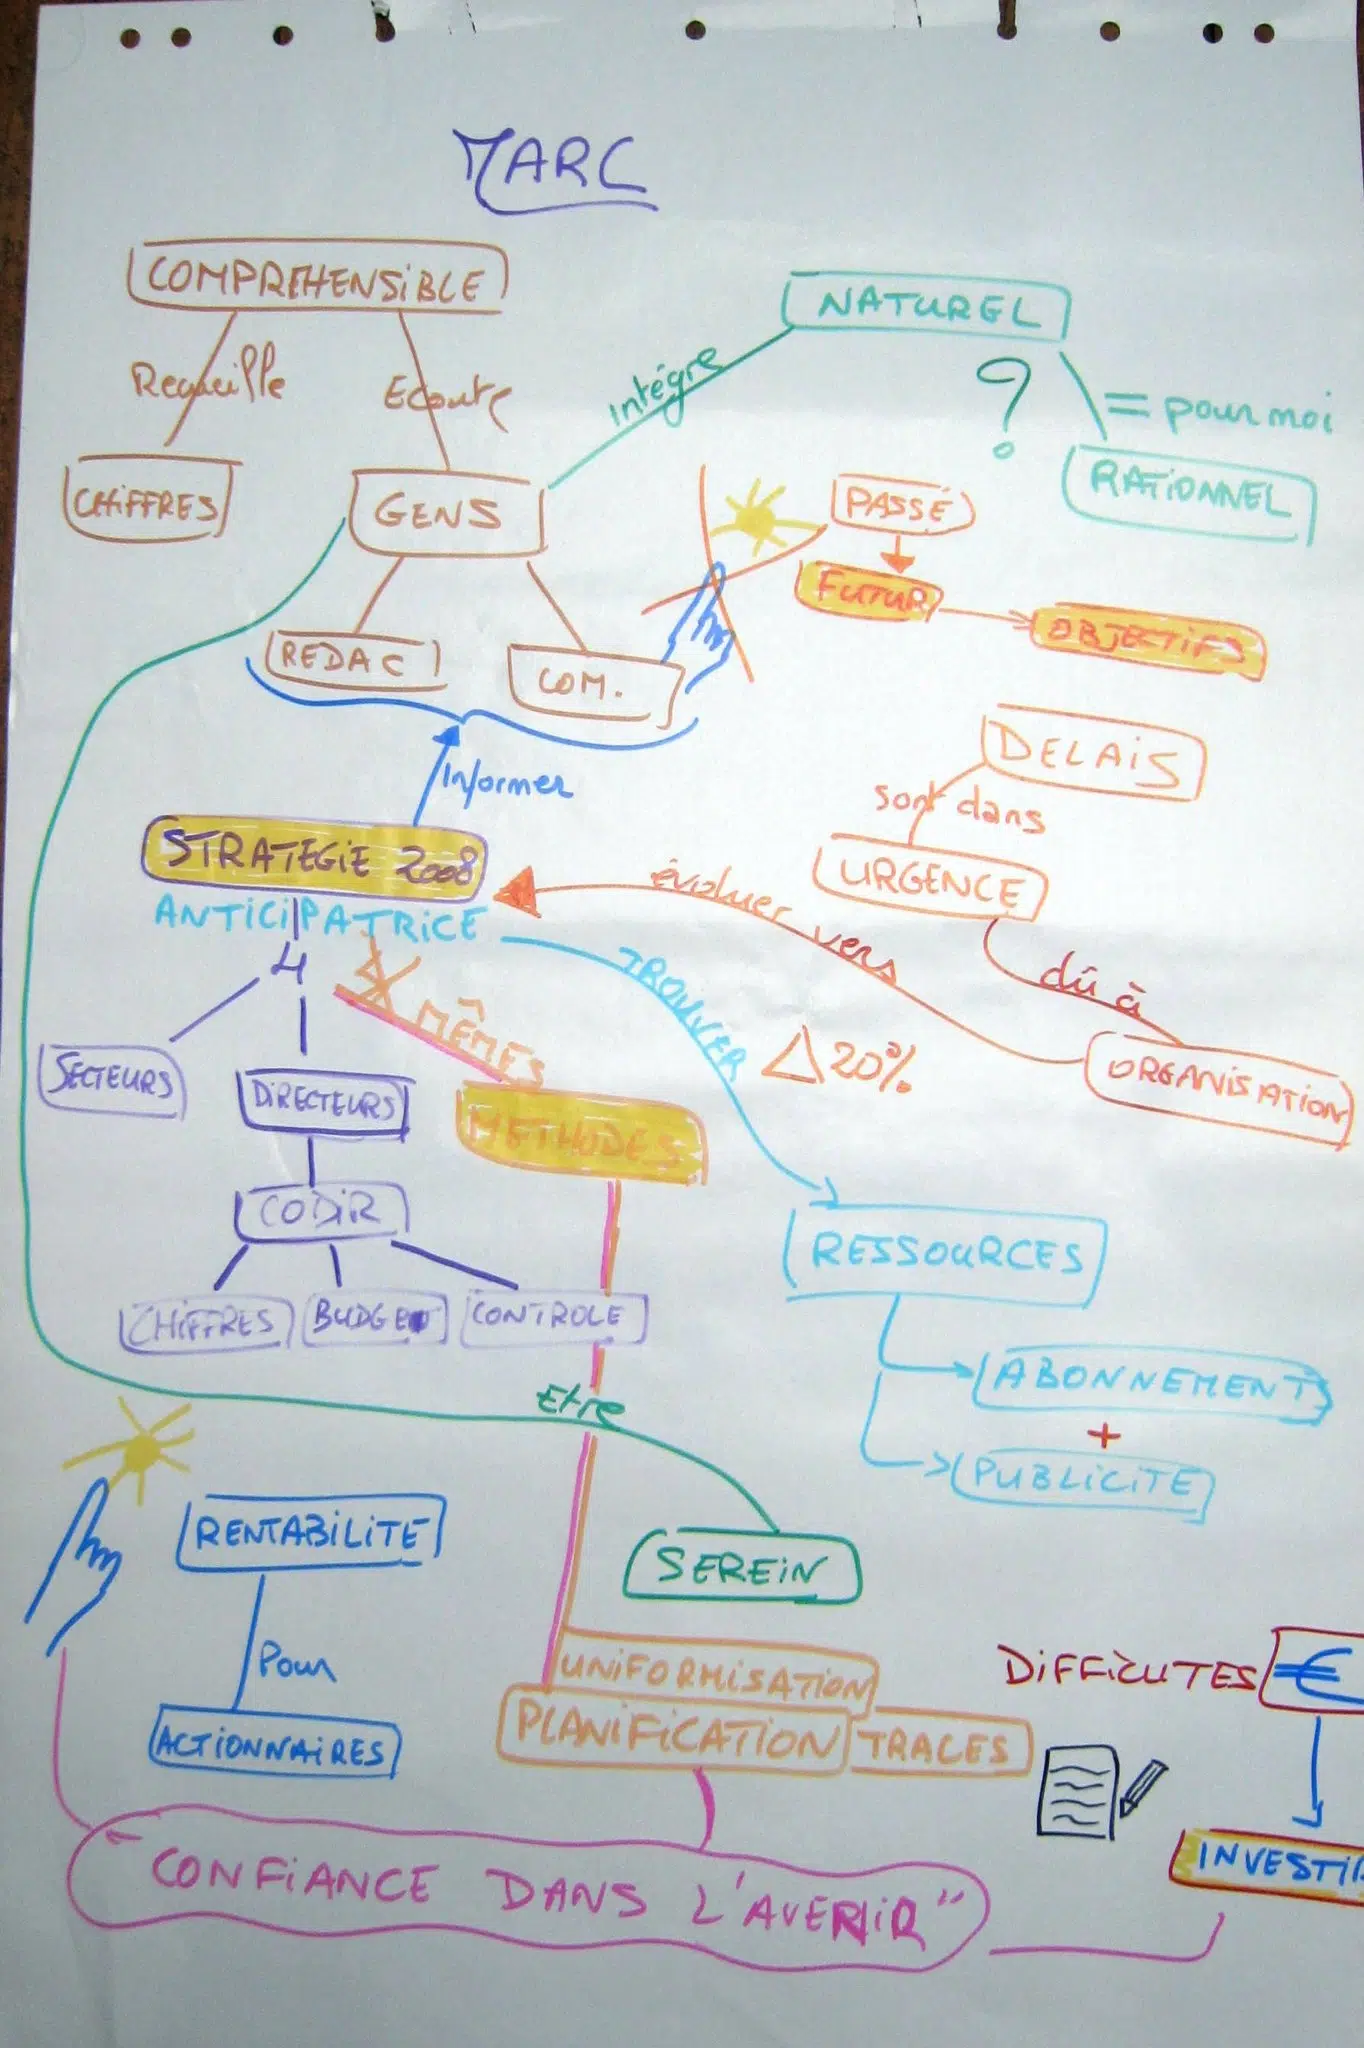 MARC
COMPREHENSIBLE
NATUREL
Recueille
Ecoute
Intègre
?
= pour moi
CHIFFRES
GENS
PASSÉ
RATIONNEL
FUTUR
OBJECTIFS
REDAC
COM.
Informer
DELAIS
sont dans
URGENCE
STRATEGIE 2008
ANTICIPATRICE
évoluer vers
dû à
ORGANISATION
4
MÊMES
TROUVER
Δ 20%
SECTEURS
DIRECTEURS
METHODES
CODIR
RESSOURCES
CHIFFRES
BUDGET
CONTROLE
ABONNEMENTS
+
PUBLICITE
Etre
RENTABILITE
SEREIN
Pour
ACTIONNAIRES
UNIFORMISATION
PLANIFICATION
TRACES
DIFFICUTES
€
INVESTIR
"CONFIANCE DANS L'AVENIR"